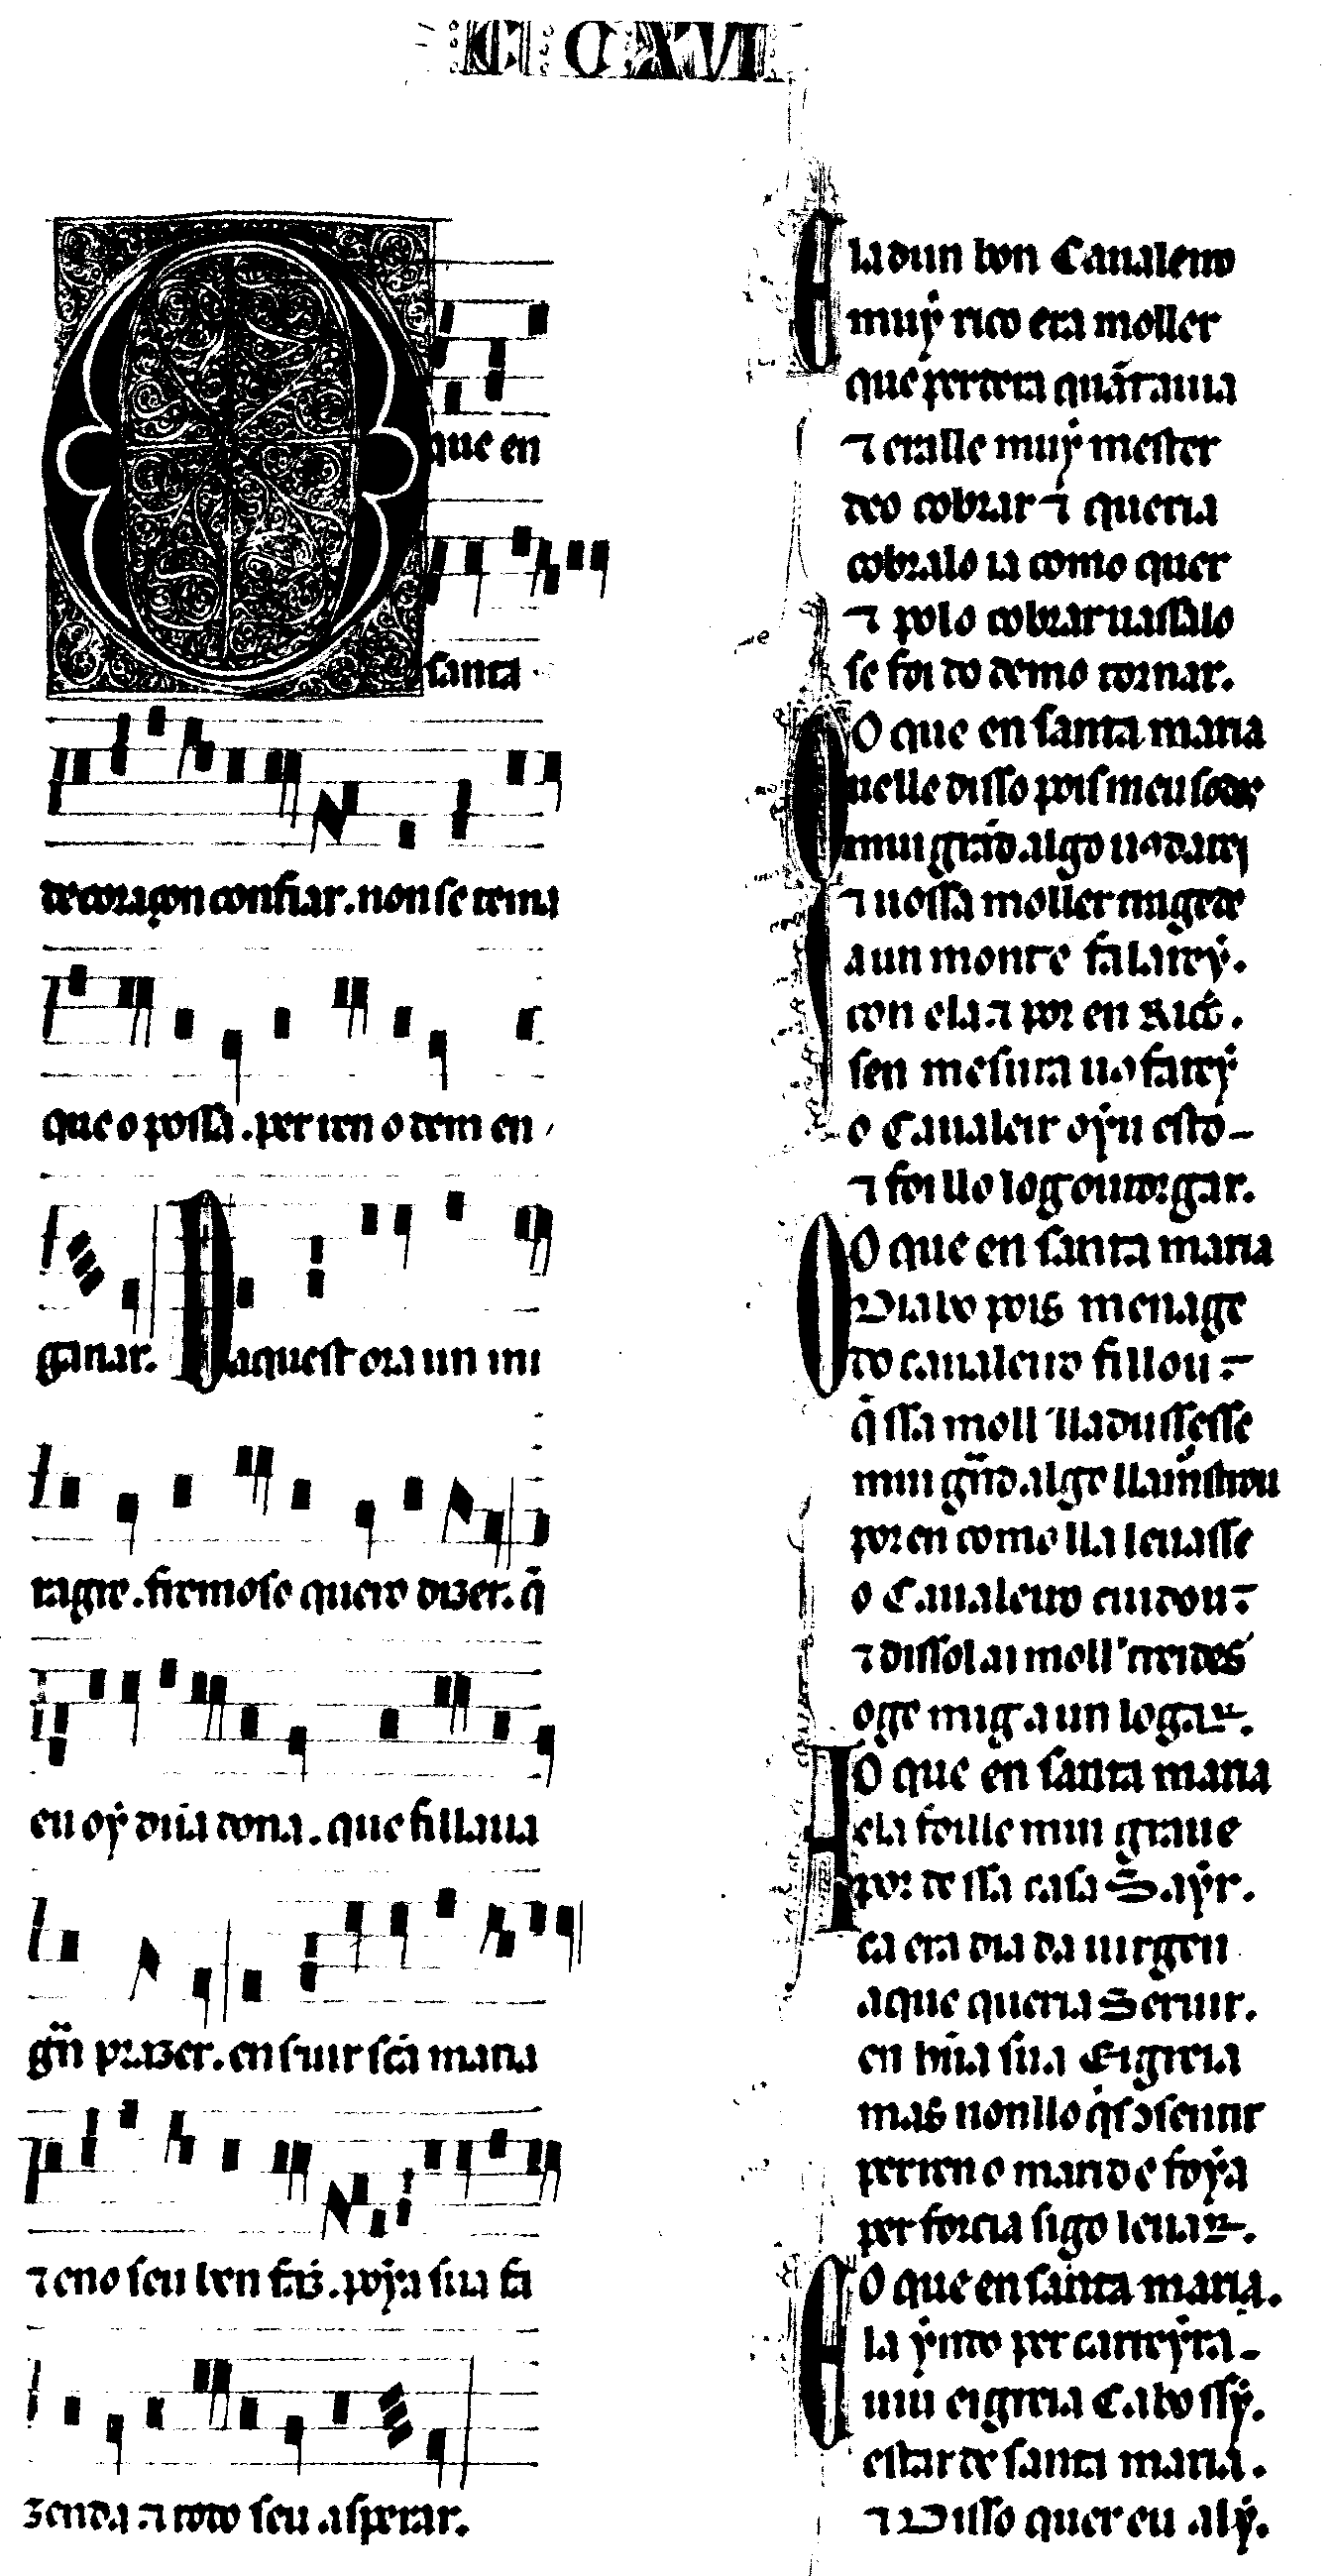 CCXVI
O que en
santa
de coraçon confiar. non se tema
que o possa. per ren o dem en
ganar. Daquest ora un mi
ragre. fremoso quero dizer. q̃
eu oý dũa dona. que fillaua
gñ prazer. en ſuir sc̃a maria
⁊ eno seu ben faz̃. poýa sua fa
zenda ⁊ todo seu asperar.
Ela dun bon Caualeiro
muỹ rico era moller
que perdera quãt auia
⁊ eralle muỹ mester
deo cobrar ⁊ queria
cobralo ia como quer
⁊ polo cobrar uassalo
se foi do demo tornar.
O que en santa maria
Quelle disso pois meu sodes
mui grãd algo uos darei
⁊ uossa moller tragede
a un monte falarey.
con ela ⁊ por en Rico.
sen mesura uos farey
o Caualeir oyu esto
⁊ foi llo log outorgar.
O que en santa maria
O Diabo pois menage
do caualeiro fillou
q̃ ssa moll' lladussesse
mui gñd algo llamostrou
por en como lla leuasse
o Caualeiro cuidou
⁊ dissol ai moll' treides
oge mig a un logar.
O que en santa maria
A ela foille mui graue
por de ssa casa Sayr.
ca era dia da uirgen
a que queria Seruir.
en hũa sua Eigreia
mas non llo q̃s cõsentir
per ren e mandes foýa
per forcia sigo leuar.
O que en santa maria.
Ela ýndo per carreyra
uiu eigreia Cabo ssý.
estar de santa maria.
⁊ Disso quer eu alý.